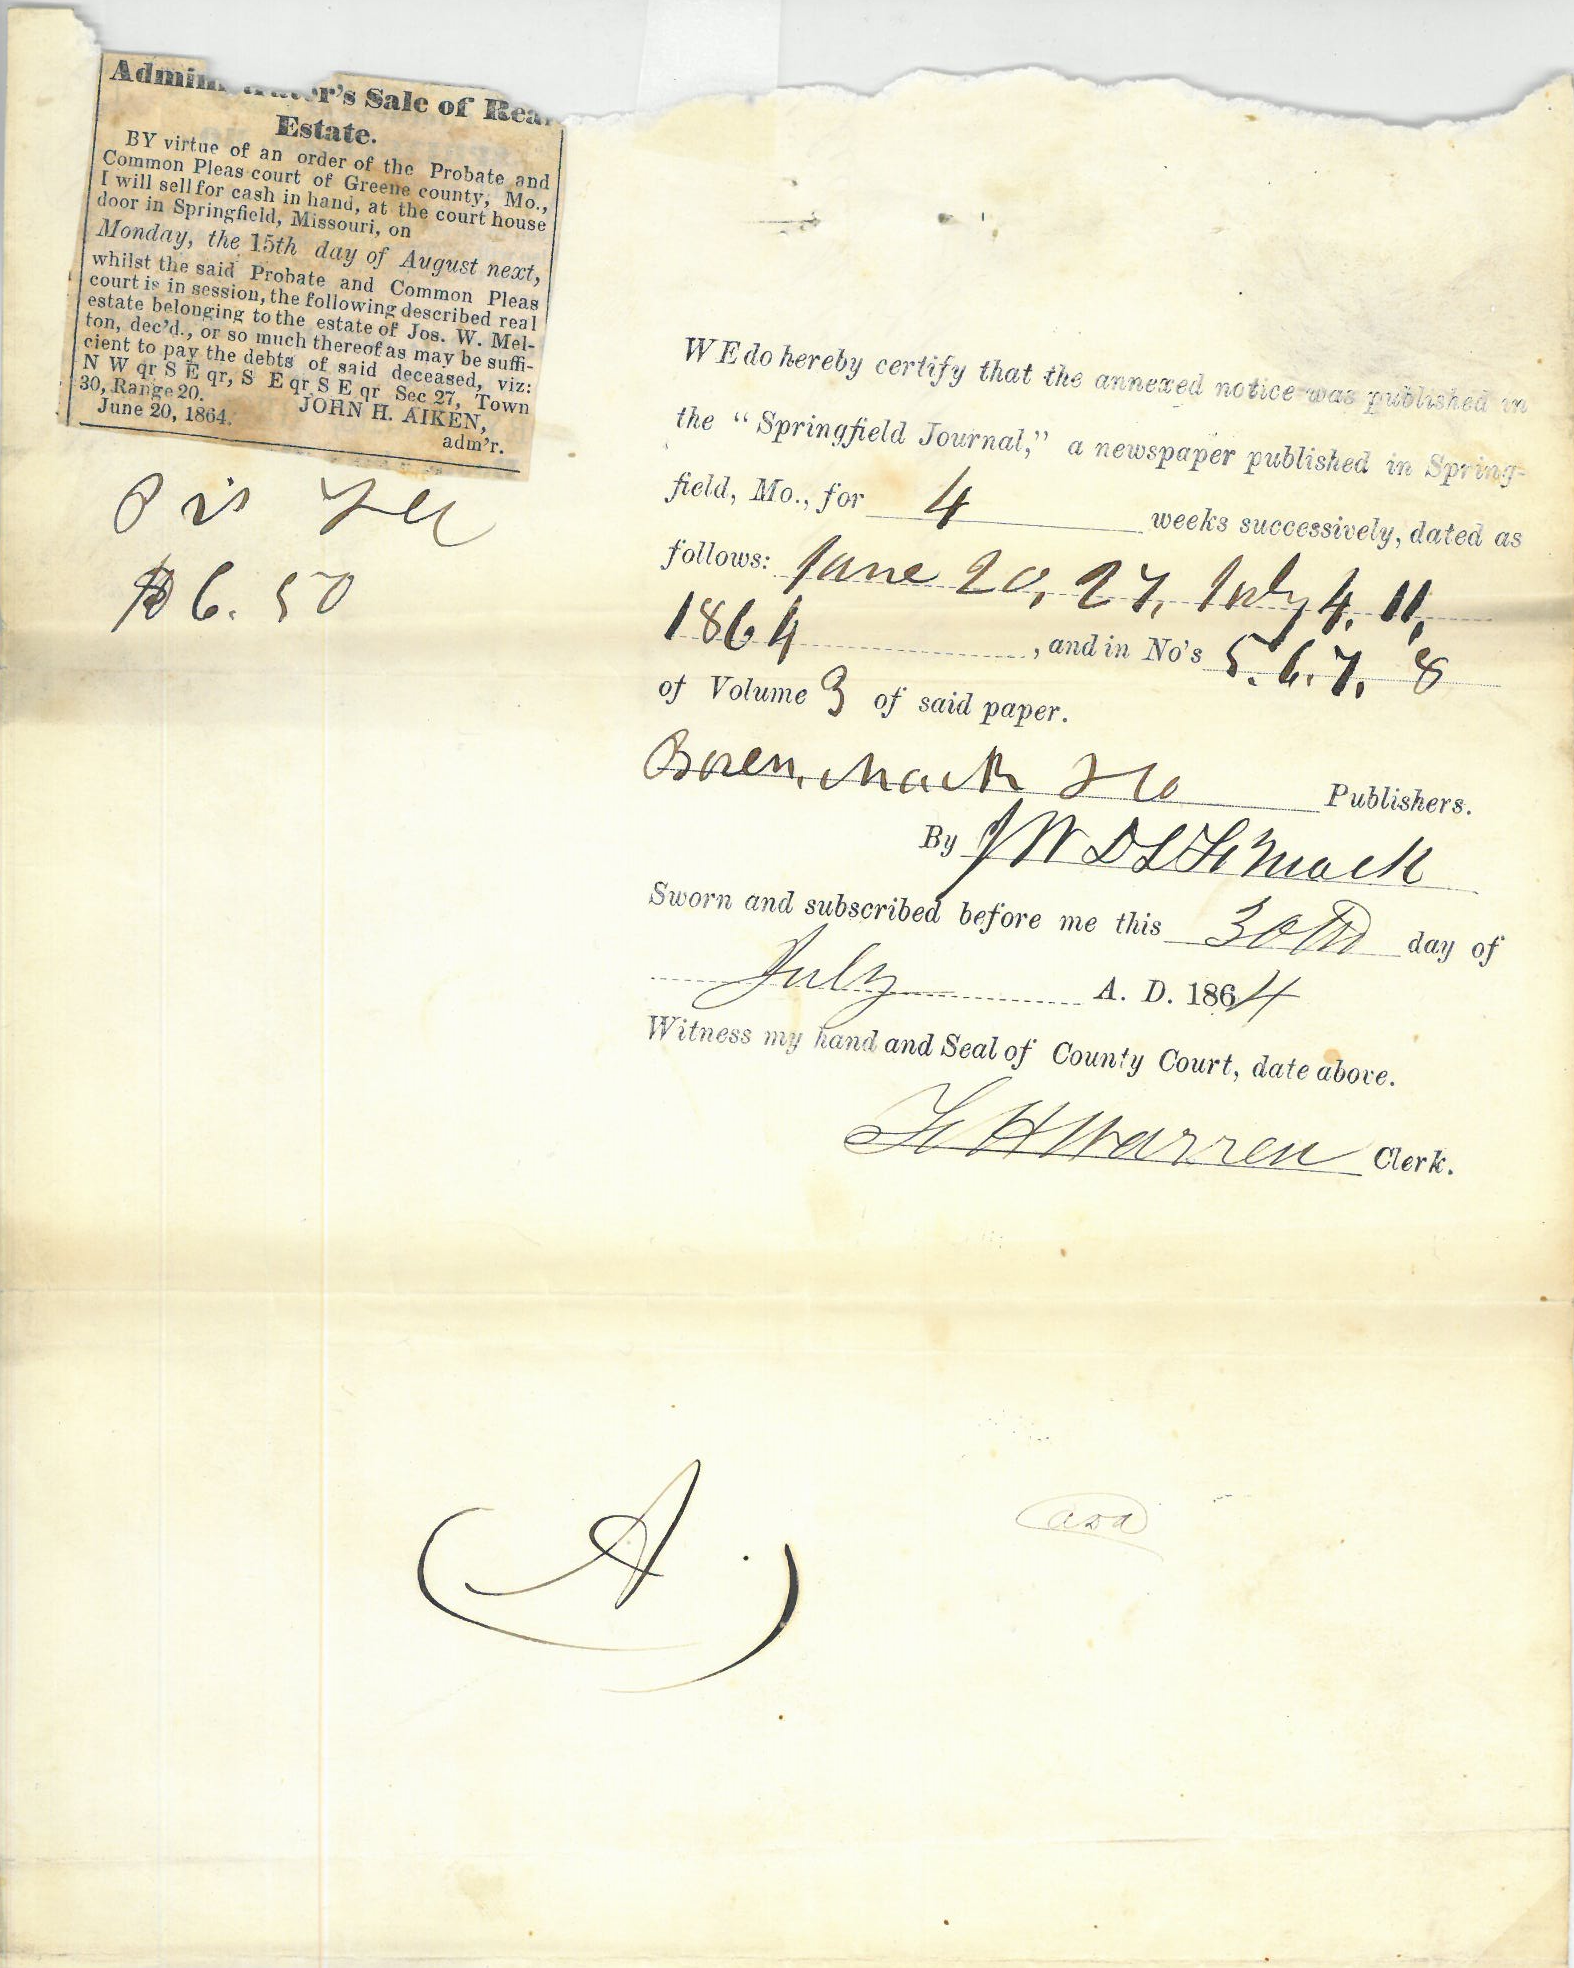 Adminitrator's Sale of Real
Estate.
BY virtue of an order of the Probate and
Common Pleas court of Greene county, Mo.,
I will sell for cash in hand, at the court house
door in Springfield, Missouri, on
Monday, the 15th day of August next,
whilst the said Probate and Common Pleas
court is in session, the following described real
estate belonging to the estate of Jos. W. Mel-
ton, dec'd., or so much thereof as may be suffi-
cient to pay the debts of said deceased, viz:
N W qr S E qr, S E qr S E qr Sec 27, Town
30, Range 20.
JOHN H. AIKEN,
June 20, 1864.
adm'r.
$6.50
WE do hereby certify that the annexed notice was published in
the "Springfield Journal," a newspaper published in Spring-
field, Mo., for 4 weeks successively, dated as
follows: June 20, 27, July 4, 11,
1864, and in No's 5. 6. 7. 8
of Volume 3 of said paper.
Boren, Mack & Co Publishers.
By Mack
Sworn and subscribed before me this 30th day of
July A. D. 1864
Witness my hand and Seal of County Court, date above.
H Warren Clerk.
A.